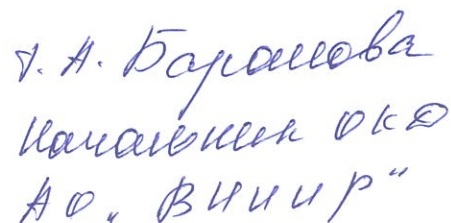 Т. А. Баранова
Начальник ОКД
АО „ВНИИР"